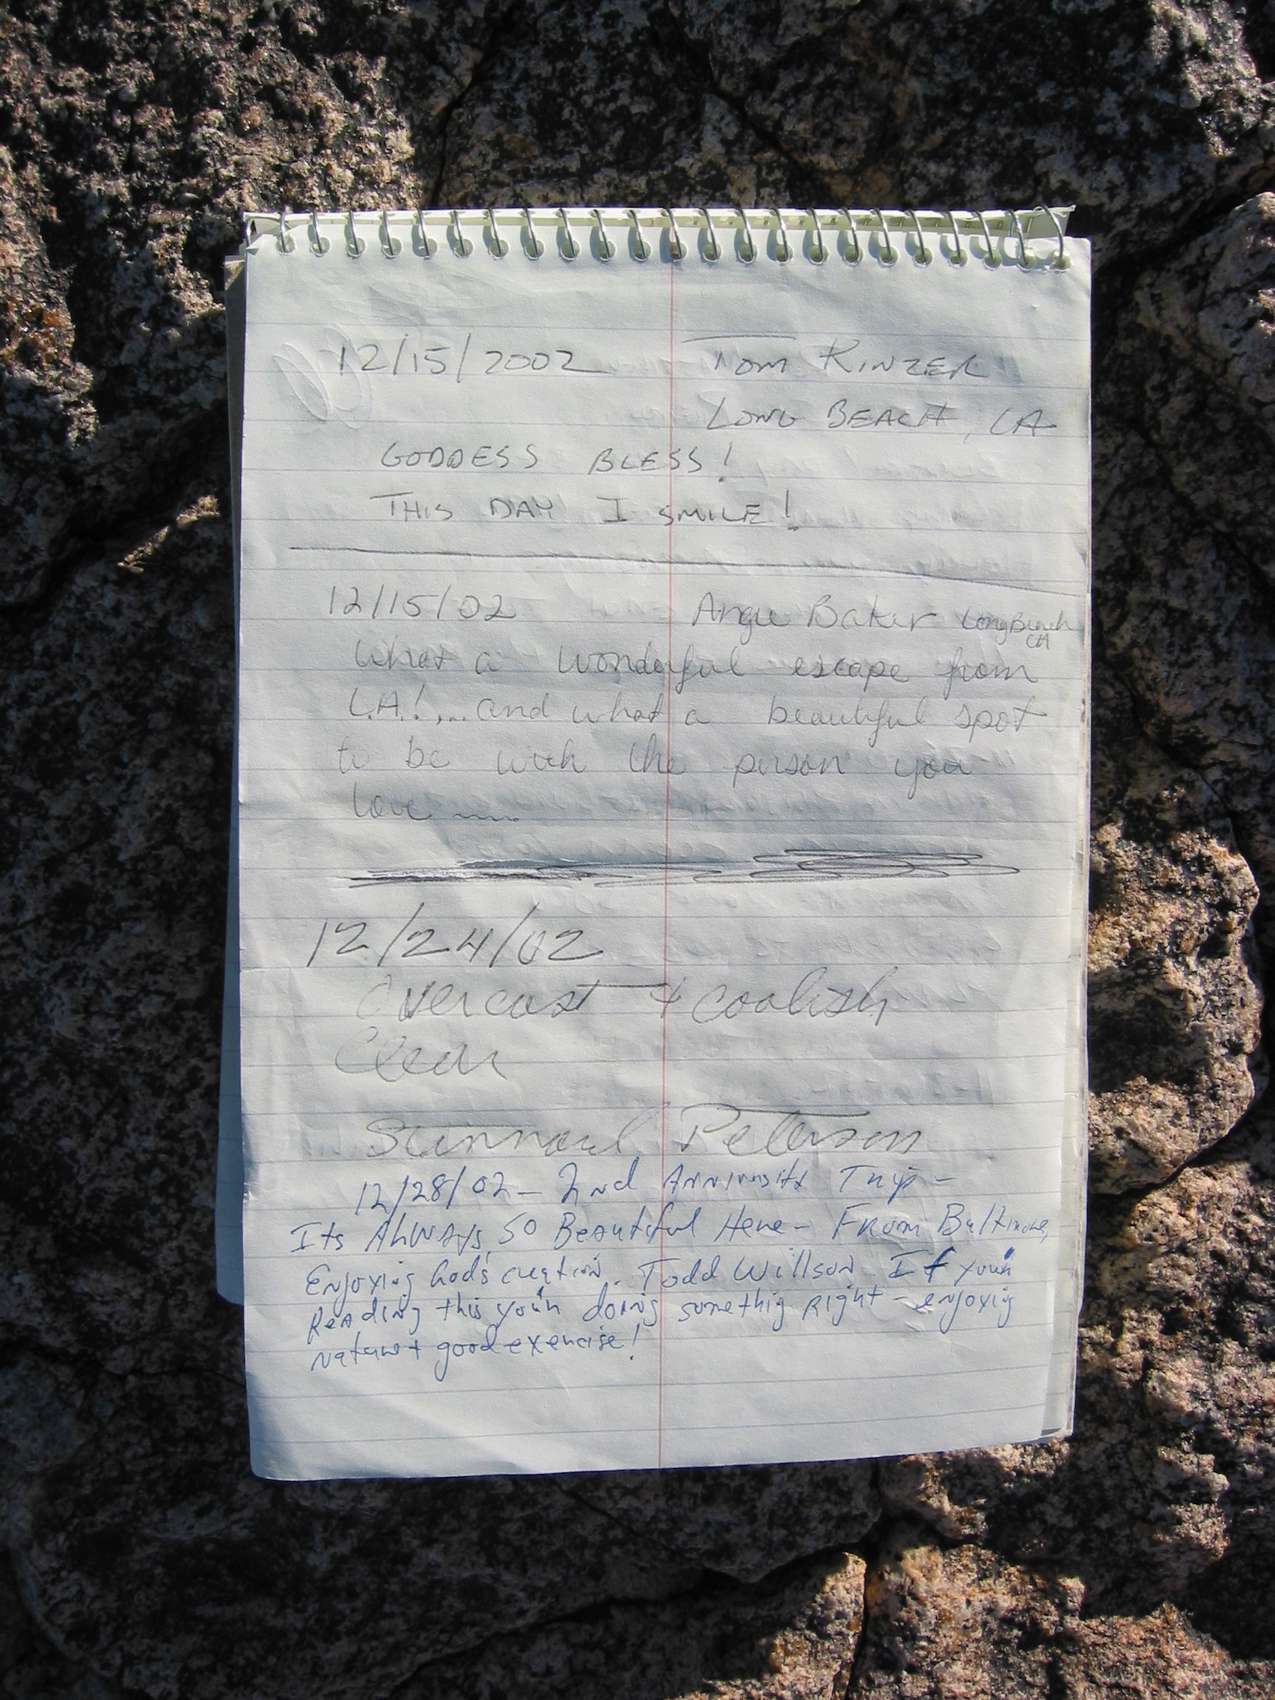 12/15/2002 TOM KINZER
LONG BEACH, CA
GODDESS BLESS!
THIS DAY I SMILE!
12/15/02 Angie Baker Long Beach
CA
What a wonderful escape from
L.A.!... and what a beautiful spot
to be with the person you
love ....
12/24/02
Overcast & coolish
Clear
Peterson
12/28/02 - 2nd Anniversity Trip -
Its Always So Beautiful Here - From Baltimore,
Enjoying God's creation. Todd Willson If your
Reading this your doing somethig right - enjoyig
nature + good exercise!